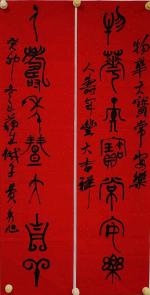 物華天寶常安樂
物華天寶常安樂
人壽年豐大吉祥
人壽年豐大吉羊
癸卯